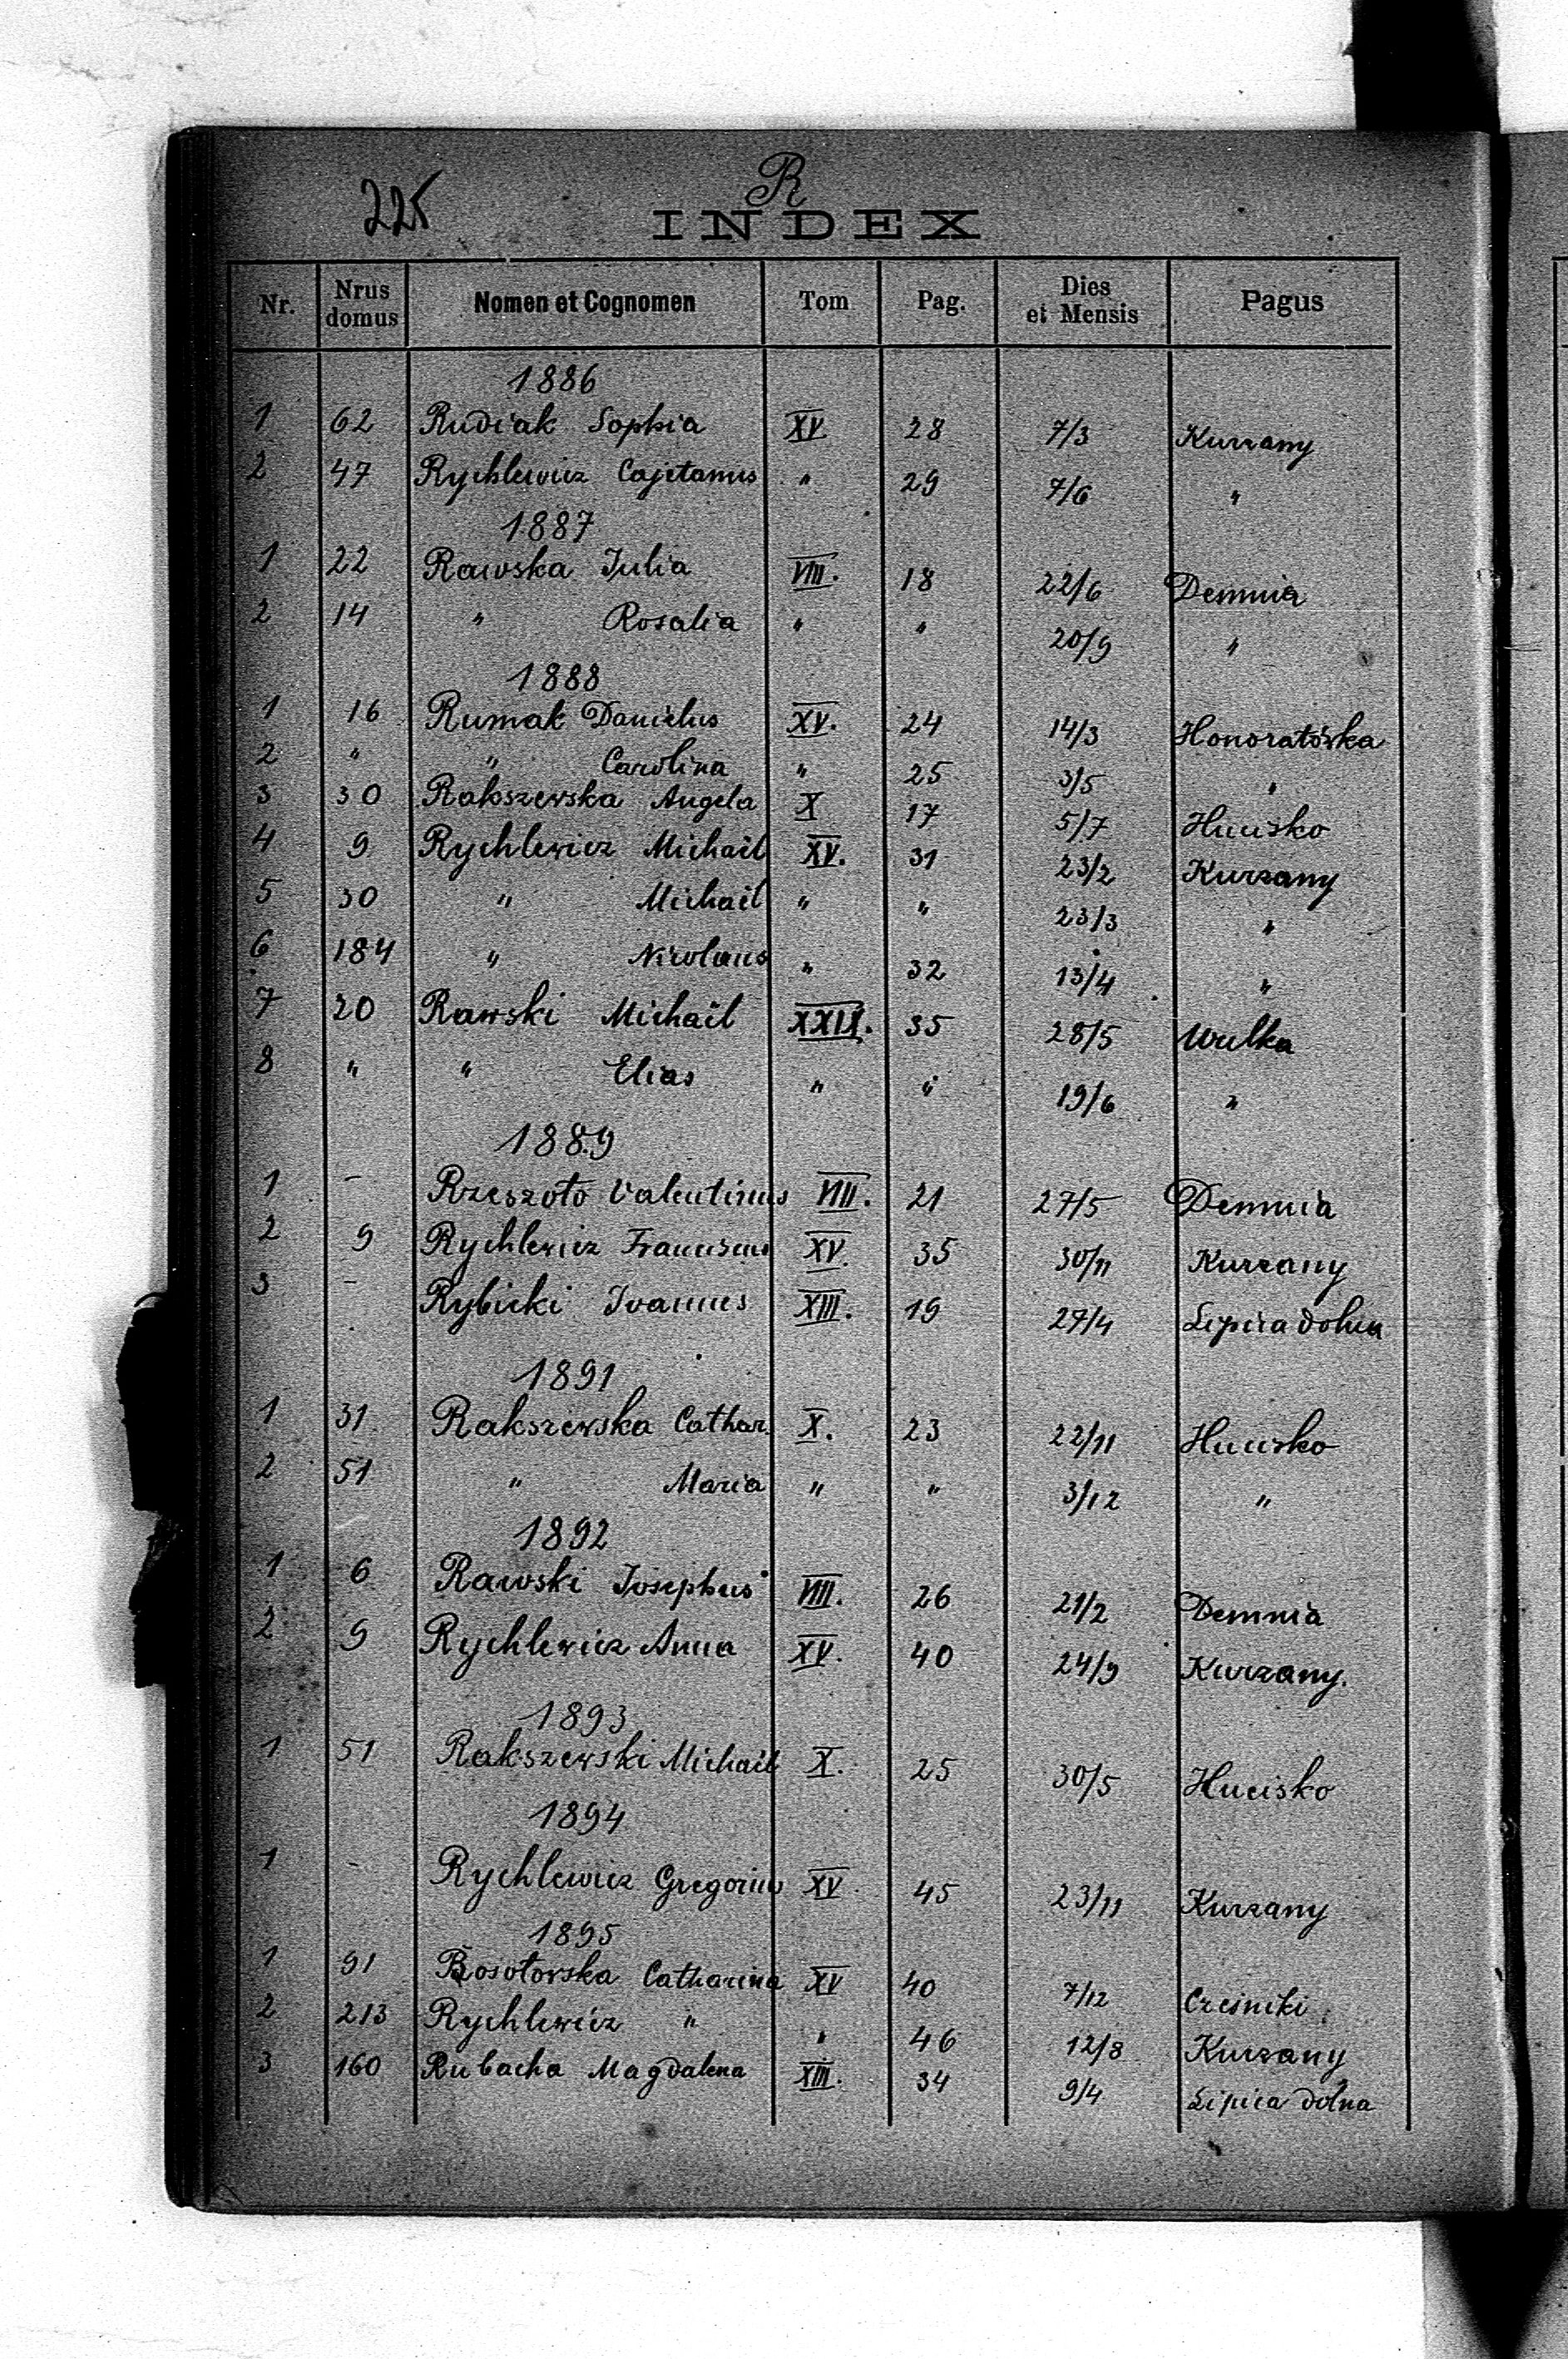 225
R
INDEX
Nr. Nrus domus Nomen et Cognomen Tom Pag. Dies et Mensis Pagus
1886
1 62 Rudiak Sophia XV 28 7/3 Kurzany
2 47 Rychlewicz Cajetanus " 29 7/6 "
1887
1 22 Rawska Julia VIII. 18 22/6 Demnia
2 14 " Rosalia " " 20/9 "
1888
1 16 Rumak Danielus XV. 24 14/3 Honoratówka
2 " " Carolina " 25 3/5 "
3 30 Rakszewska Angela X 17 5/7 Hucisko
4 9 Rychlewicz Michaël XV. 31 23/2 Kurzany
5 30 " Michaël " " 23/3 "
6 184 " Nicolaus " 32 13/4 "
7 20 Rawski Michaël 35 28/5 Wulka
8 " " Elias " " 19/6 "
1889
1 - Rzeszoto Valentinus VIII. 21 27/5 Demnia
2 9 Rychlewicz Franciscus XV. 35 30/11 Kurzany
3 - Rybicki Joannes XIII. 19 27/4 Lipica dolna
1891
1 31 Rakszewska Cathar. X. 23 22/11 Hucisko
2 51 " Maria " " 3/12 "
1892
1 6 Rawski Josephus VIII. 26 21/2 Demnia
2 9 Rychlewicz Anna XV. 40 24/9 Kurzany.
1893
1 51 Rakszewski Michaël X. 25 30/5 Hucisko
1894
1 - Rychlewicz Gregorius XV 45 23/11 Kurzany
1895
1 91 Catharina XV 40 7/12 Cześniki
2 213 Rychlewicz " " 46 12/8 Kurzany
3 160 Rubacha Magdalena XIII. 34 9/4 Lipica dolna